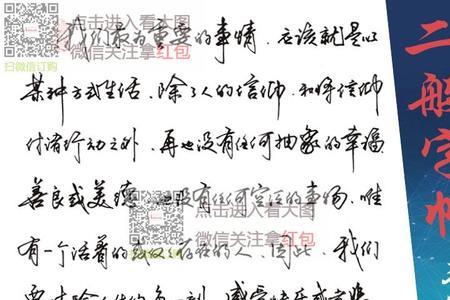 点击进入看大图
微信关注拿红包
扫微信订购
我们最为重要的事情，应该就是以
某种方式生活、除了人的信仰、和将信仰
付诸行动之外，再也没有任何抽象的幸福、
善良或美德，也没有任何空泛的事物，唯
点击进入看大图
微信关注拿红包
有一个活着的或仅仅存在的人，因此，我们
二般字帖